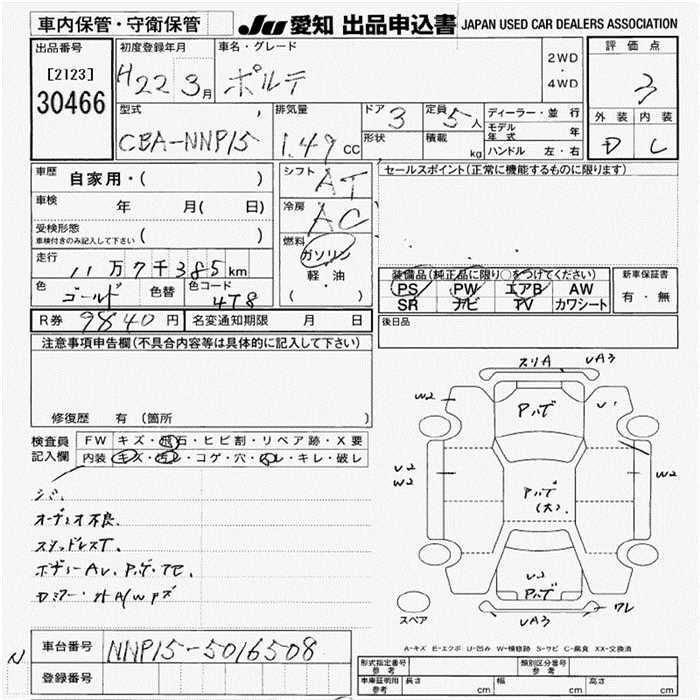 車内保管・守衛保管
JU 愛知 出品申込書 JAPAN USED CAR DEALERS ASSOCIATION
出品番号
[2123]
30466
初度登録年月
H22 3月
車名・グレード
ポルテ
2WD
・
4WD
評価点
3
外装 内装
D C
型式
CBA-NNP15
排気量
1.49 CC
ドア 3
形状
定員 5人
積載 kg
ディーラー・並行
モデル年式 年
ハンドル 左・右
車歴 自家用・( )
車検 年 月( 日)
受検形態
車検付きのみ記入して下さい ( )
走行 11万7千385km
色 ゴールド 色替 色コード 4T8
シフト AT
冷房 AC
燃料
ガソリン
軽・油
( )
セールスポイント(正常に機能するものに限ります)
装備品(純正品に限り○をつけてください)
PS PW エアB AW
SR ナビ TV カワシート
新車保証書
有・無
R券 9840円 名変通知期限 月 日
後日品
注意事項申告欄(不具合内容等は具体的に記入して下さい)
修復歴 有(箇所
検査員記入欄
FW キズ・飛石・ヒビ割・リペア跡・X要
内装 キズ・汚レ・コゲ・穴・スレ・キレ・破レ
シミ
オーディオ不良
スタッドレスT.
スリA UA3
W2 Pハゲ U1
U2
W2 Pハゲ (大) W2
UJ
Pハゲ
UA3 ワレ
スペア
A-キズ E-エクボ U-凹み W-補修跡 S-サビ C-腐食 XX-交換済
N
車台番号 NNP15-5016508
登録番号
形式指定番号 参考
類別区分番号 参考
車庫証明用 参考 長さ cm 幅 cm 高さ cm